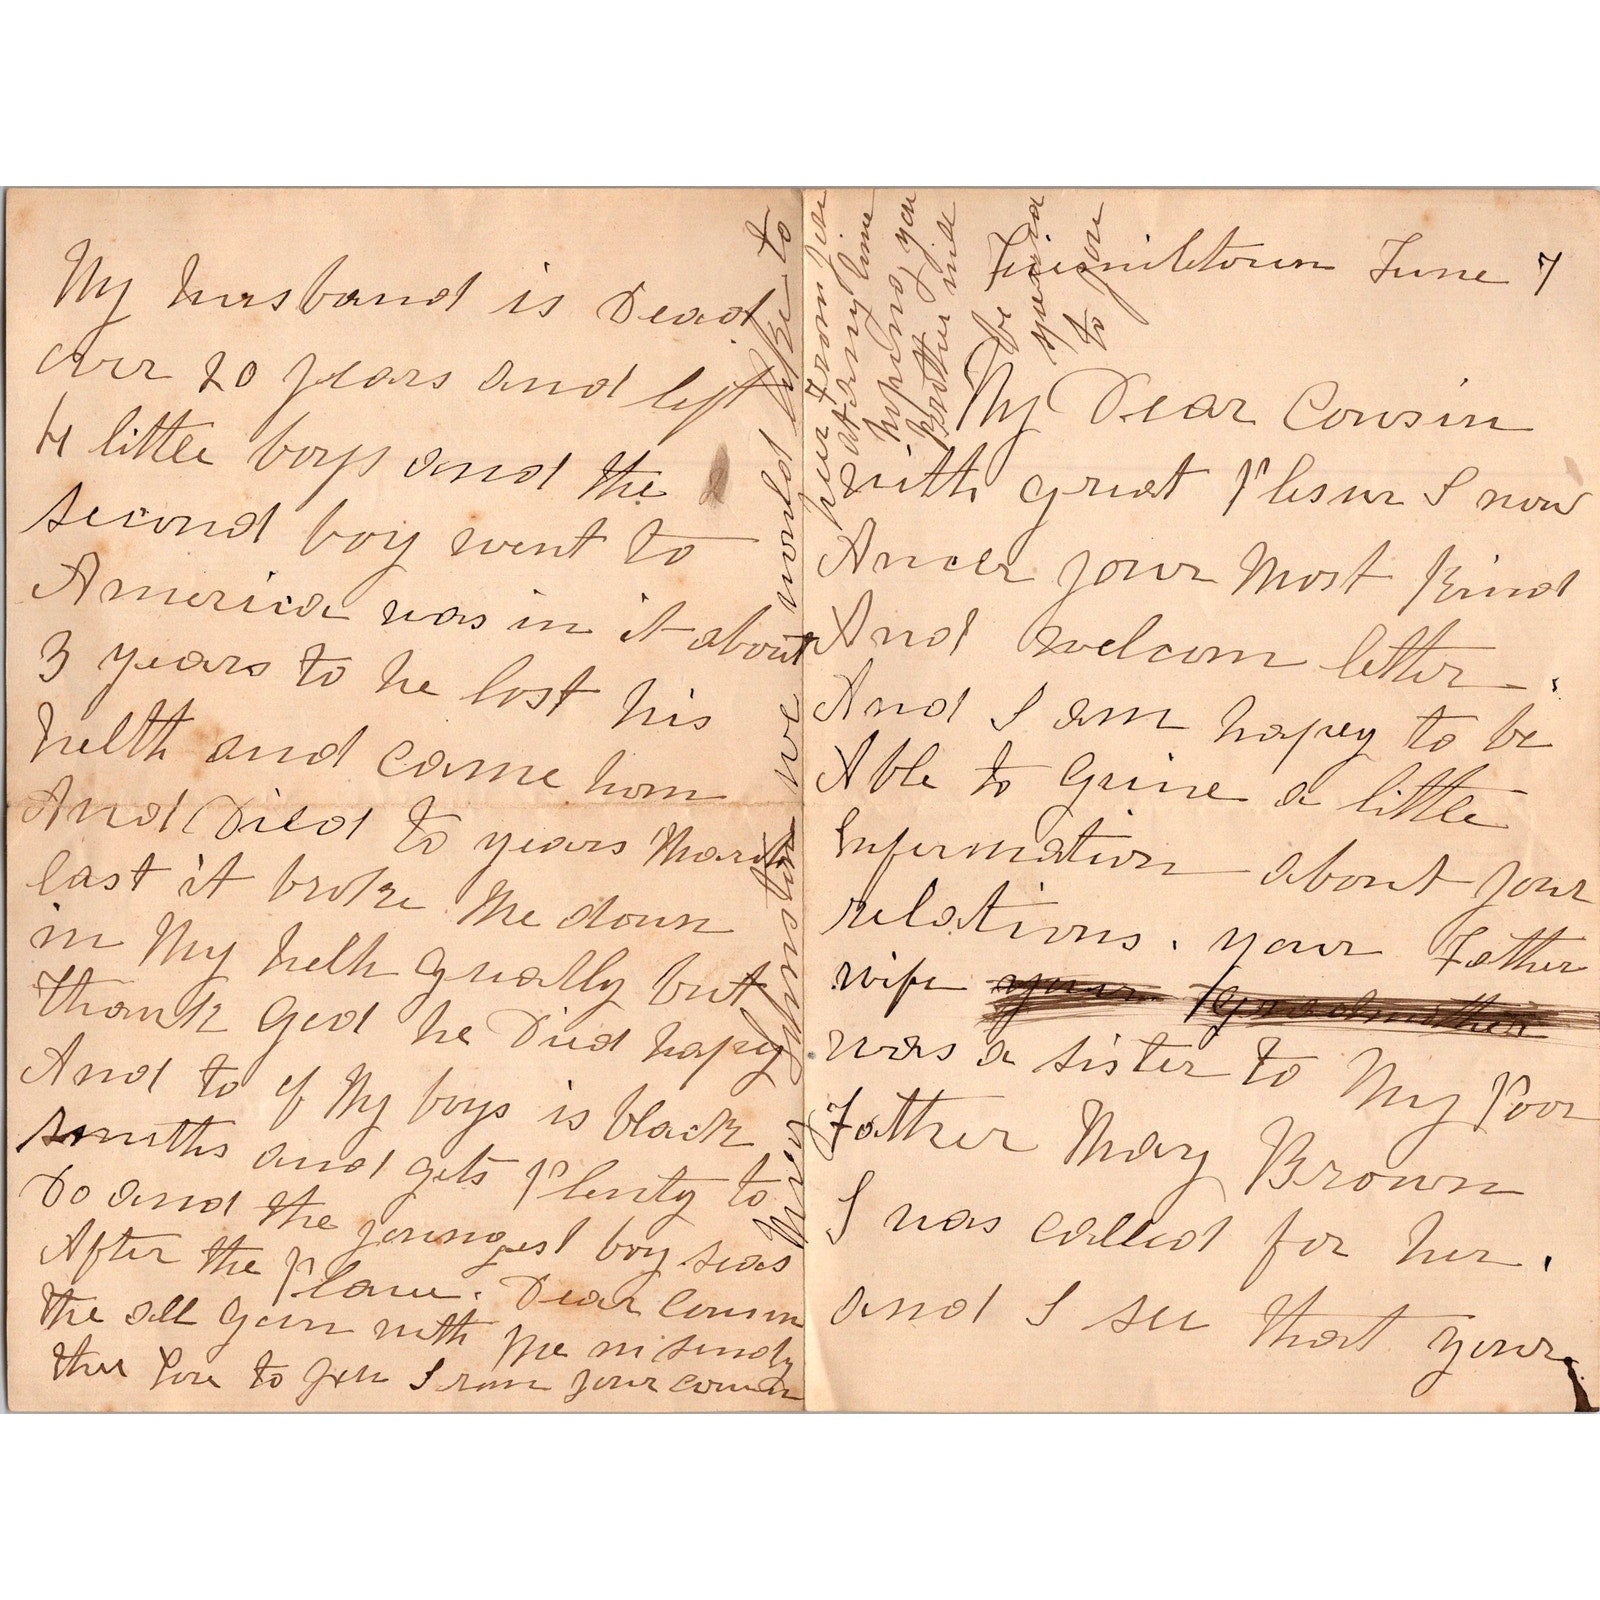 June 7
My Dear Cousin
with great Plesur I now
Ancer your Most kind
And welcom letter.
And I am hapey to be
Able to give a little
Information about your
relations. your Father
wife
was a sister to My Poor
Father May Brown
I was called for her.
and I see that your
My husband is Dead
over 20 years and left
4 little boys and the
second boy went to
America was in it about
3 years to he lost his
helth and came hom
And Died to years March
last it broke Me down
in My helth greatly but
thank God he Died hapey
And to of My boys is black
smiths and gets Plenty to
Do and the youngest boy seas
After the Place. Dear Cousin
the all goin with Me in sendy
ther love to you I rem your cousin
Johnston we would like to
hear from you
at any time
hoping you
Brother will
be
to you